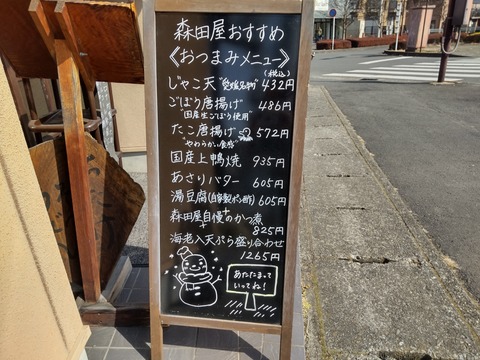 森田屋おすすめ
《おつまみメニュー》
(税込)
じゃこ天"愛媛名物" 432円
ごぼう唐揚げ 486円
"国産生ごぼう使用"
たこ唐揚げ 572円
"やわらかい食感"
国産上鴨焼 935円
あさりバター 605円
湯豆腐(自家製ポン酢) 605円
森田屋自慢のかつ煮
825円
海老入天ぷら盛り合わせ
1265円
あたたまって
いってね!